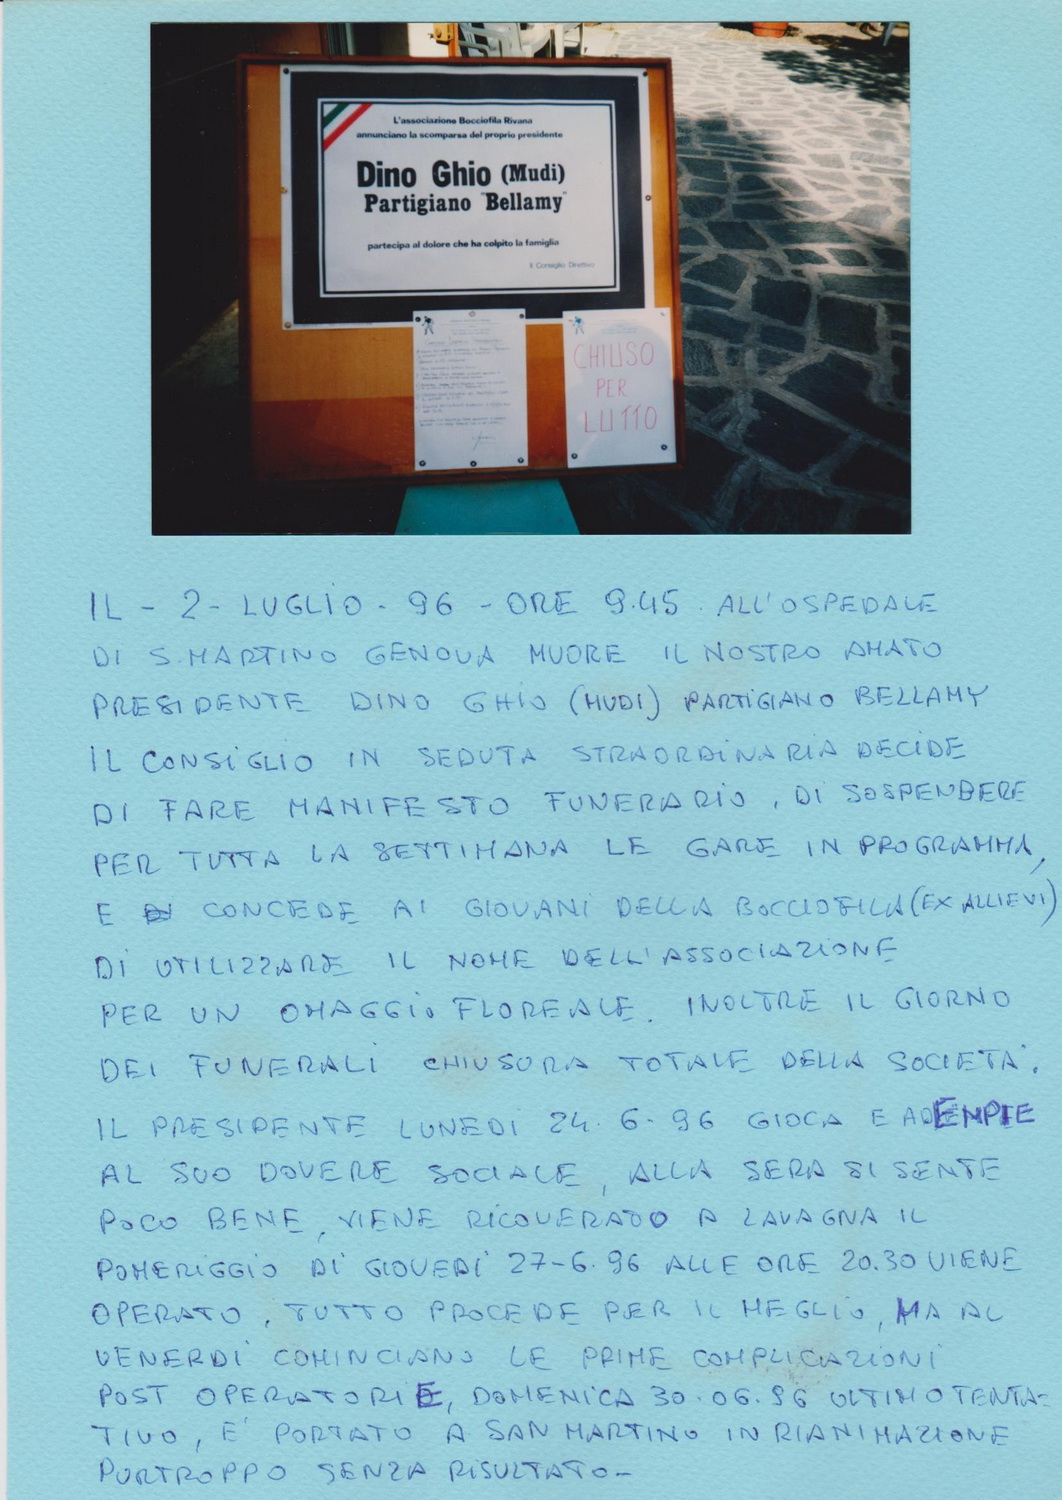 L'associazione Bocciofila Rivana
annunciano la scomparsa del proprio presidente
Dino Ghio (Mudi)
Partigiano "Bellamy"
partecipa al dolore che ha colpito la famiglia
Il Consiglio Direttivo
CHIUSO
PER
LUTTO
IL - 2 - LUGLIO - 96 - ORE 9.45. ALL'OSPEDALE
DI S. MARTINO GENOVA MUORE IL NOSTRO AMATO
PRESIDENTE DINO GHIO (MUDI) PARTIGIANO BELLAMY
IL CONSIGLIO IN SEDUTA STRAORDINARIA DECIDE
DI FARE MANIFESTO FUNERARIO, DI SOSPENDERE
PER TUTTA LA SETTIMANA LE GARE IN PROGRAMMA,
E CONCEDE AI GIOVANI DELLA BOCCIOFILA (EX ALLIEVI)
DI UTILIZZARE IL NOME DELL'ASSOCIAZIONE
PER UN OMAGGIO FLOREALE. INOLTRE IL GIORNO
DEI FUNERALI CHIUSURA TOTALE DELLA SOCIETA'.
IL PRESIDENTE LUNEDI 24.6-96 GIOCA E ADEMPIE
AL SUO DOVERE SOCIALE, ALLA SERA SI SENTE
POCO BENE, VIENE RICOVERATO A LAVAGNA IL
POMERIGGIO DI GIOVEDI 27-6.96 ALLE ORE 20.30 VIENE
OPERATO, TUTTO PROCEDE PER IL MEGLIO, MA AL
VENERDI COMINCIANO LE PRIME COMPLICAZIONI
POST OPERATORIE, DOMENICA 30.06.96 ULTIMO TENTA=
TIVO, E' PORTATO A SAN MARTINO IN RIANIMAZIONE
PURTROPPO SENZA RISULTATO-